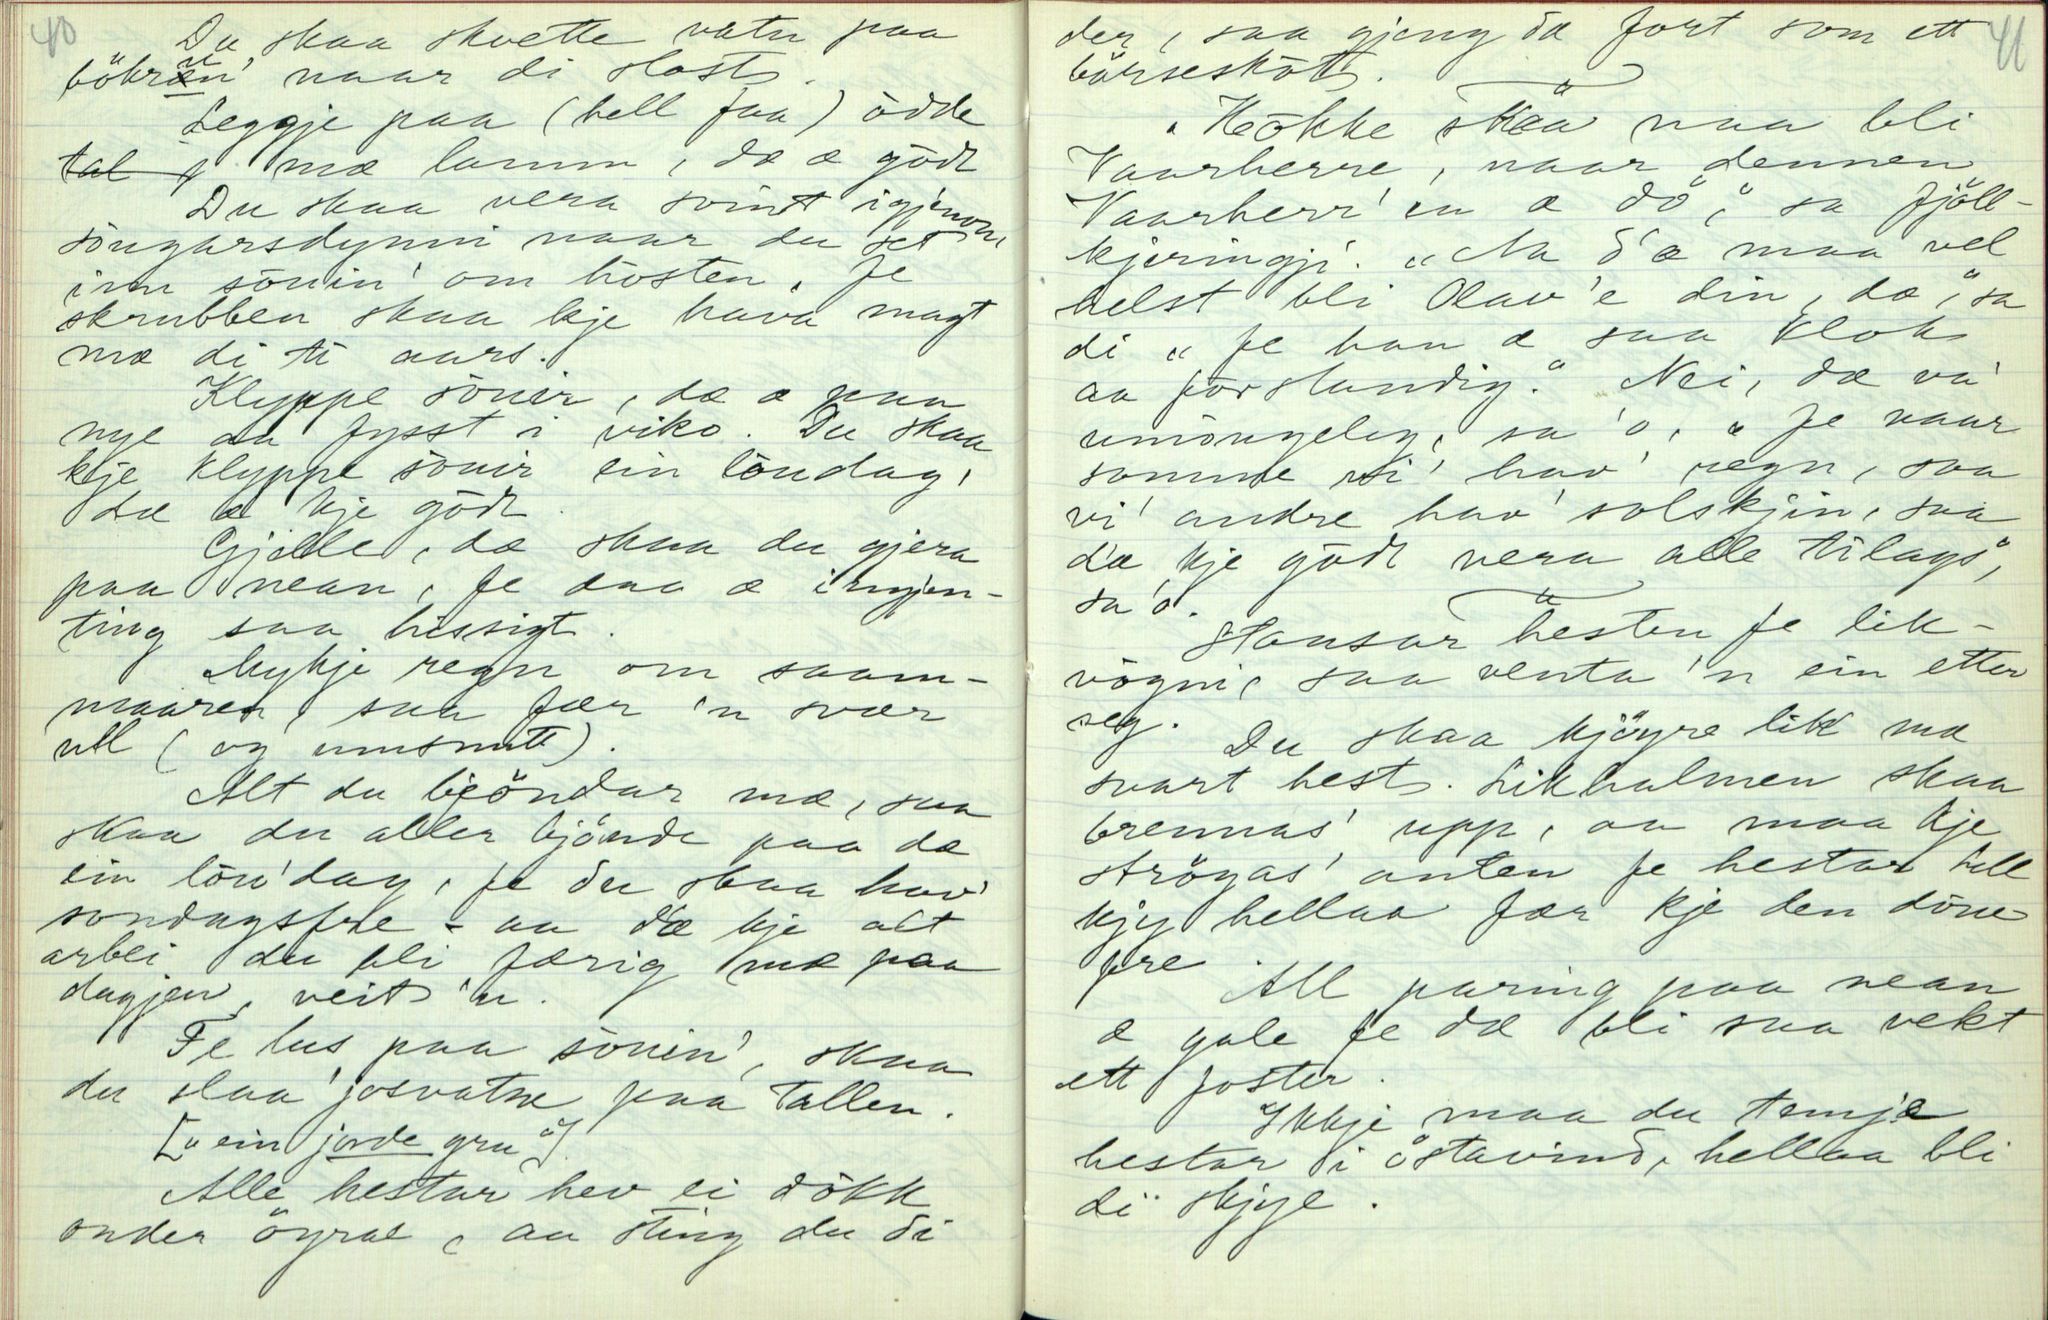 40
Du skaa skvette vatn paa
bökran' naar di slost.
Leggje paa (hell faa) ödde
tal mæ lamm, dæ æ gödt
Du skaa vera svint igjönom
söugarsdynni naar du set
inn söuin' om hösten, fe
skrubben skaa kje hava magt
mæ di ti aars.
Klyppe söuir, dæ æ paa
nye aa fysst i viko. Du skaa
kje klyppe söuir ein löudag,
dæ æ kje gödt.
Gjelle, dæ skaa du gjera
paa nean, fe daa æ ingjen-
ting saa hissigt.
Mykje regn om saam-
maaren, saa fær 'n svær
ull (og umsnutt).
Alt du bjöndar mæ, saa
skaa du aller bjönde paa dæ
ein löu'dag, fe du skaa hav'
sondagsfre - aa d'æ kje alt
arbei du bli færig mæ paa
dagjen, veit 'n.
Fe lus paa söuin', skaa
du slaa josvatne paa tallen.
[„ein jorde gru“].
Alle hestar hev ei dökk
onder öyrae, aa sting du di
41
der, saa gjeng dæ fort som ett
börseskot.
„Hökke skaa naa bli
Vaarherre, naar dennen
Vaarherr'en æ dö“, sa fjöll-
kjeringji. „Na d'æ maa vel
helst bli Olav'e din, dæ“, sa
di „fe han æ saa klok
aa förstandig.“ Nei, dæ va'
umöugeleg, sa 'o, „fe naar
somme vi' hav' regn, saa
vi' andre hav' solskjin, saa
d'æ kje gödt vera alle tilags“,
sa 'o.
Stansar hesten fe lik-
vögni, saa venta 'n ein etter
seg.
Du skaa kjöyre lik mæ
svart hest. Likhalmen skaa
brennas' upp, aa maa kje
ströyas' anten fe hestar hell
kjy hellaa fær kje den döue
fre
All paring paa nean
æ gale fe dæ bli saa vekt
ett foster.
Ikkje maa du temje
hestar i östavind, hellaa bli
di skjye.